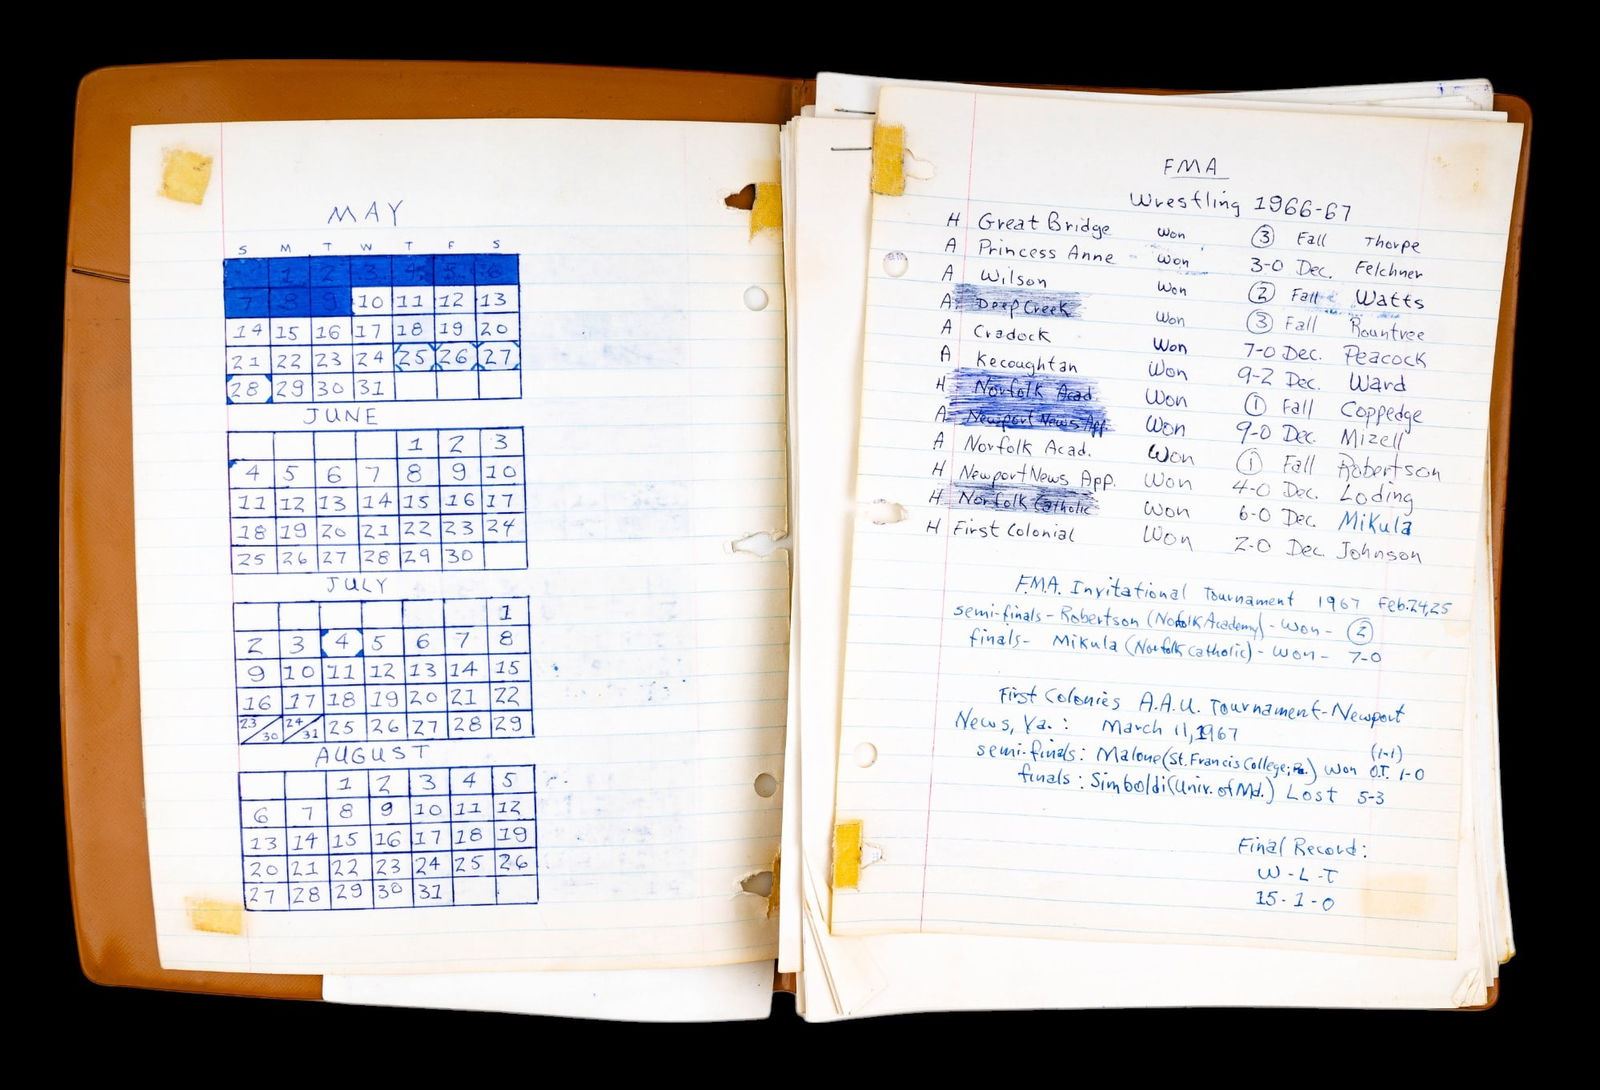 MAY
S M T W T F S
1 2 3 4 5 6
7 8 9 10 11 12 13
14 15 16 17 18 19 20
21 22 23 24 25 26 27
28 29 30 31
JUNE
1 2 3
4 5 6 7 8 9 10
11 12 13 14 15 16 17
18 19 20 21 22 23 24
25 26 27 28 29 30
JULY
1
2 3 4 5 6 7 8
9 10 11 12 13 14 15
16 17 18 19 20 21 22
23/30 24/31 25 26 27 28 29
AUGUST
1 2 3 4 5
6 7 8 9 10 11 12
13 14 15 16 17 18 19
20 21 22 23 24 25 26
27 28 29 30 31
FMA
Wrestling 1966-67
H Great Bridge Won 3 Fall Thorpe
A Princess Anne - Won 3-0 Dec. Felchner
A Wilson Won 2 Fall Watts
A Deep Creek Won 3 Fall Rountree
A Cradock Won 7-0 Dec. Peacock
A Kecoughtan Won 9-2 Dec. Ward
H Norfolk Acad. Won 1 Fall Coppedge
A Newport News App. Won 9-0 Dec. Mizell
A Norfolk Acad. Won 1 Fall Robertson
H Newport News App. Won 4-0 Dec. Loding
H Norfolk Catholic Won 6-0 Dec. Mikula
H First Colonial Won 2-0 Dec. Johnson
F.M.A. Invitational Tournament 1967 Feb. 24,25
semi-finals - Robertson (Norfolk Academy) - Won - 2
finals - Mikula (Norfolk Catholic) - Won - 7-0
First Colonies A.A.U. Tournament - Newport
News, Va. : March 11, 1967
(1-1)
semi-finals : Malone (St. Francis College; Pa.) Won O.T. 1-0
finals : Simboldi (Univ. of Md.) Lost 5-3
Final Record :
W - L - T
15 - 1 - 0